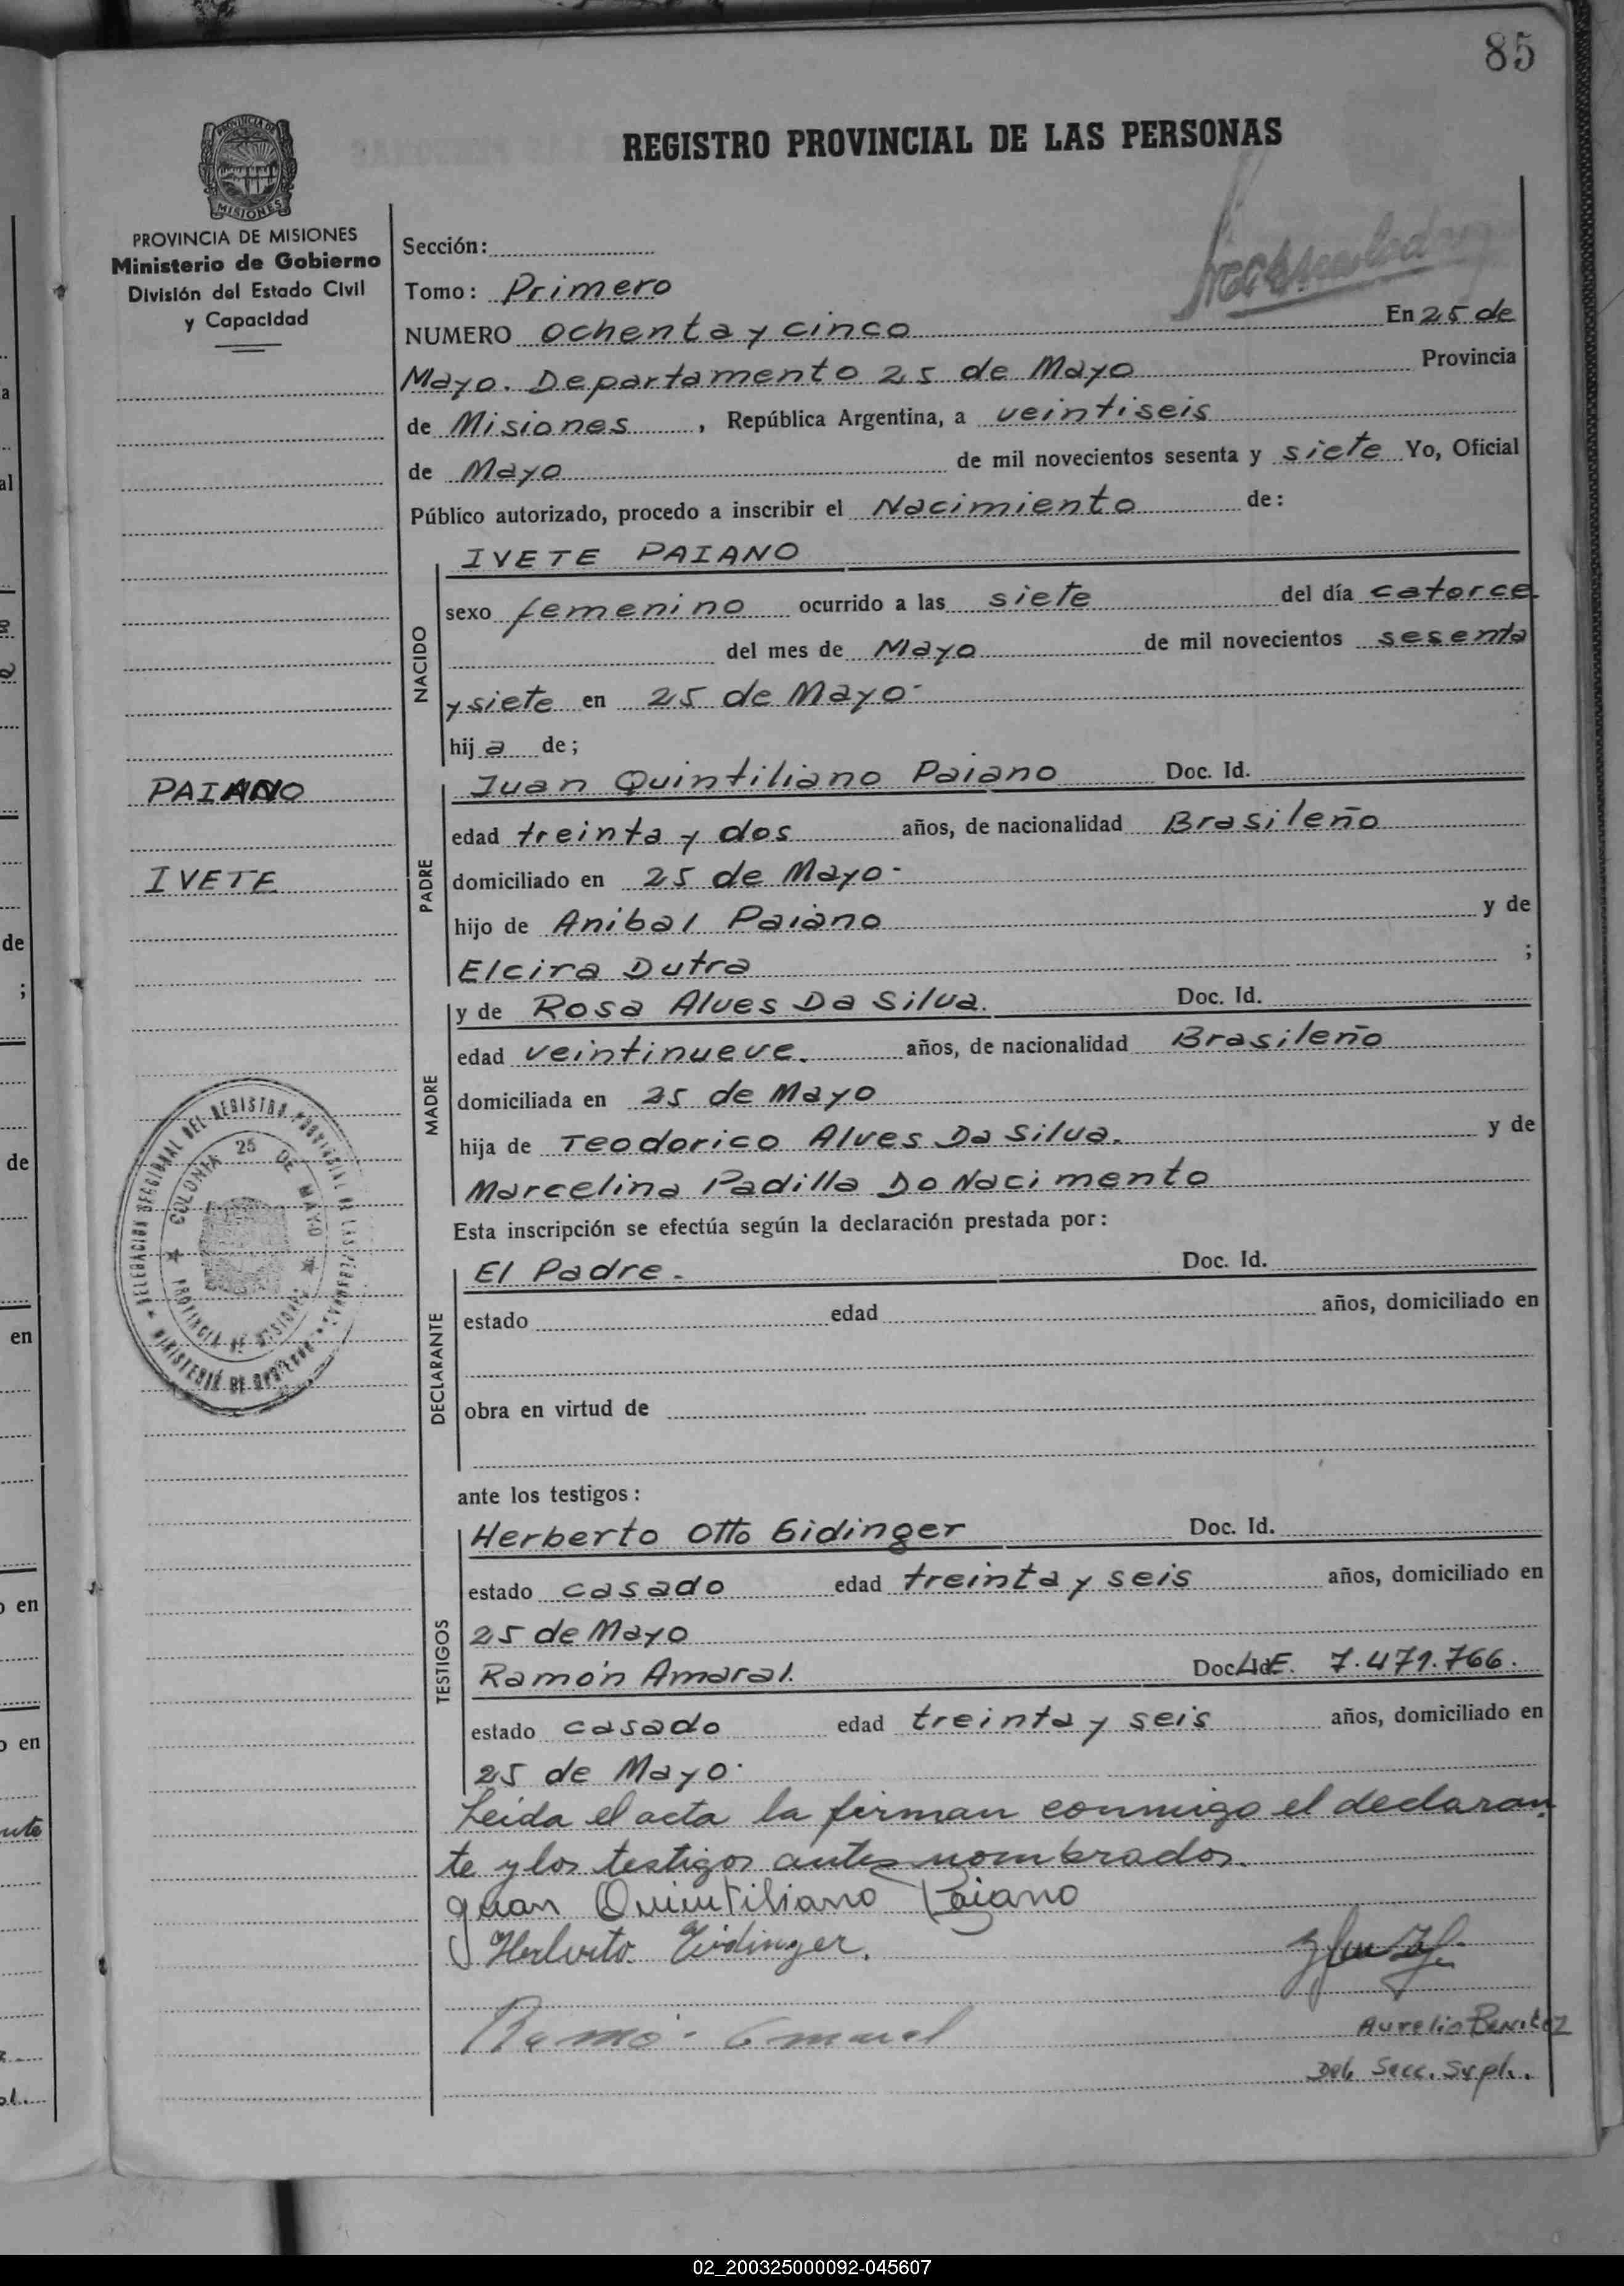 85
REGISTRO PROVINCIAL DE LAS PERSONAS
PROVINCIA DE
MISIONES
PROVINCIA DE MISIONES
Ministerio de Gobierno
División del Estado Civil
y Capacidad
Sección:
Tomo: Primero
NUMERO Ochenta y cinco En 25 de
Mayo. Departamento 25 de Mayo Provincia
de Misiones , República Argentina, a veintiseis
de Mayo de mil novecientos sesenta y siete Yo, Oficial
Público autorizado, procedo a inscribir el Nacimiento de:
IVETE PAIANO
NACIDO
sexo femenino ocurrido a las siete del día catorce
del mes de Mayo de mil novecientos sesenta
y siete en 25 de Mayo-
hij a de;
PAIANO
IVETE
PADRE
Juan Quintiliano Paiano Doc. Id.
edad treinta y dos años, de nacionalidad Brasileño
domiciliado en 25 de Mayo-
hijo de Anibal Paiano y de
Elcira Dutra ;
MADRE
y de Rosa Alves Da Silva. Doc. Id.
edad veintinueve. años, de nacionalidad Brasileño
domiciliada en 25 de Mayo
hija de Teodorico Alves Da Silva. y de
Marcelina Padilla Do Nacimento
DELEGACION SECCIONAL DEL REGISTRO PROVINCIAL DE LAS PERSONAS
MINISTERIO DE GOBIERNO
COLONIA 25 DE MAYO
PROVINCIA DE MISIONES
Esta inscripción se efectúa según la declaración prestada por:
DECLARANTE
El Padre. Doc. Id.
estado edad años, domiciliado en
obra en virtud de
ante los testigos:
TESTIGOS
Herberto Otto Eidinger Doc. Id.
estado casado edad treinta y seis años, domiciliado en
25 de Mayo
Ramón Amaral. Doc. Id. L.E. 7.471.766.
estado casado edad treinta y seis años, domiciliado en
25 de Mayo.
Leida el acta la firman conmigo el declaran
te y los testigos antes nombrados.
Juan Quintiliano Paiano
Herberto Eidinger.
Ramó- Amaral
Aurelio Benitez
Del. Secc. Supl.
a
al
de
;
de
en
o en
o en
02_200325000092-045607